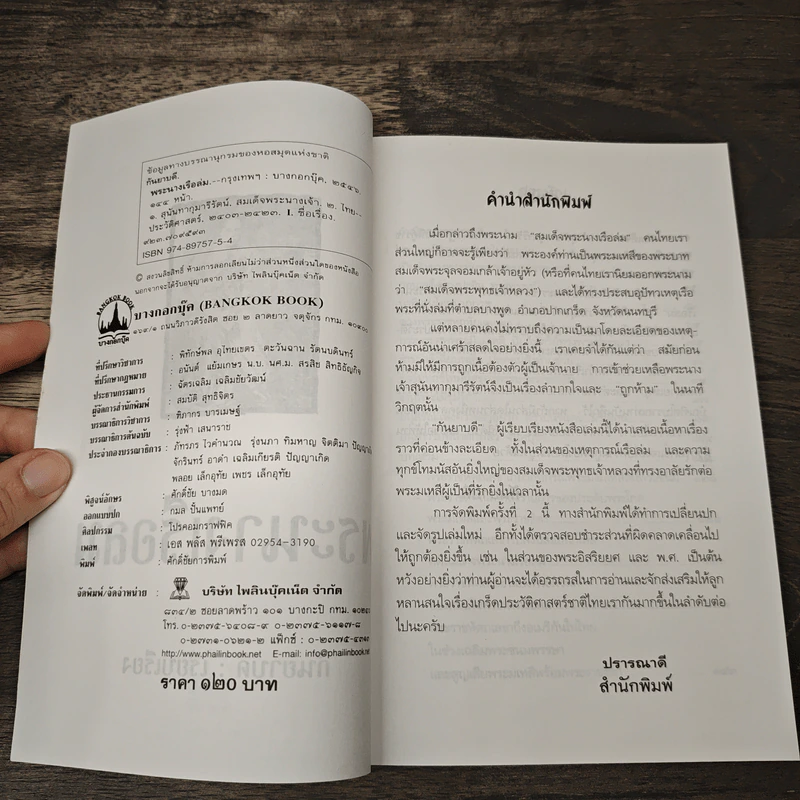 ข้อมูลทางบรรณานุกรมของหอสมุดแห่งชาติ
กันยาบดี.
พระนางเรือล่ม.--กรุงเทพฯ : บางกอกบุ๊ค, ๒๕๔๖.
๑๔๔ หน้า.
๑. สุนันทากุมารีรัตน์, สมเด็จพระนางเจ้า. ๒. ไทย--
ประวัติศาสตร์. ๒๔๐๓-๒๔๒๓. I. ชื่อเรื่อง.
๙๒๓.๗๐๙๕๙๓
ISBN 974-89757-5-4
© สงวนลิขสิทธิ์ ห้ามการลอกเลียนไม่ว่าส่วนหนึ่งส่วนใดของหนังสือ
นอกจากจะได้รับอนุญาตจาก บริษัท ไพลินบุ๊คเน็ต จำกัด
BANGKOK BOOK
บางกอกบุ๊ค
บางกอกบุ๊ค (BANGKOK BOOK)
๑๖๙/๑ ถนนวิภาวดีรังสิต ซอย ๒ ลาดยาว จตุจักร กทม. ๑๐๙๐๐
ที่ปรึกษาวิชาการ : พิทักษ์พล อุไทยเขตร ตะวันฉาน รัตนบดินทร์
ที่ปรึกษากฎหมาย : อนันต์ แย้มเกษร น.บ. นศ.ม. สรสิช สิทธิธัญกิจ
ประธานกรรมการ : ฉัตรเฉลิม เฉลิมชัยวัฒน์
ผู้จัดการสำนักพิมพ์ : สมบัติ สุทธิจิตร
บรรณาธิการวิชาการ : ทิภากร บารเมษฐ์
บรรณาธิการต้นฉบับ : รุ่งฟ้า เสนาราช
ประจำกองบรรณาธิการ : ภัทรภร ไวคำนวณ รุ่งนภา ทิมหาญ จิตติมา ปัญญา
จักรินทร์ อาดำ เฉลิมเกียรติ ปัญญาเกิด
พลอย เล็กอุทัย เพชร เล็กอุทัย
พิสูจน์อักษร : ศักดิ์ชัย บางมด
ออกแบบปก : กมล ปิ้นแพทย์
ศิลปกรรม : ไปรคอมกราฟฟิค
เพลท : เอส พลัส พรีเพรส 02954-3190
พิมพ์ : ศักดิ์ชัยการพิมพ์
จัดพิมพ์/จัดจำหน่าย : บริษัท ไพลินบุ๊คเน็ต จำกัด
๘๓๔/๒ ซอยลาดพร้าว ๑๐๑ บางกะปิ กทม.
โทร. ๐-๒๓๗๕-๖๔๐๘-๙ ๐-๒๓๗๕-๖๑๑๗-๘
๐-๒๗๓๑-๐๖๒๑-๒ แฟ็กซ์ : ๐-๒๓๗๕-๔๓๑๙
http://www.phailinbook.net E-mail: info@phailinbook.net
ราคา ๑๒๐ บาท
คำนำสำนักพิมพ์
เมื่อกล่าวถึงพระนาม "สมเด็จพระนางเรือล่ม" คนไทยเรา
ส่วนใหญ่ก็อาจจะรู้เพียงว่า พระองค์ท่านเป็นพระมเหสีของพระบาท
สมเด็จพระจุลจอมเกล้าเจ้าอยู่หัว (หรือที่คนไทยเรานิยมออกพระนาม
ว่า "สมเด็จพระพุทธเจ้าหลวง") และได้ทรงประสบอุปัทวเหตุเรือ
พระที่นั่งล่มที่ตำบลบางพูด อำเภอปากเกร็ด จังหวัดนนทบุรี
แต่หลายคนคงไม่ทราบถึงความเป็นมาโดยละเอียดของเหตุ-
การณ์อันน่าเศร้าสลดใจอย่างยิ่งนี้ เราเคยจำได้กันแต่ว่า สมัยก่อน
ห้ามมิให้มีการถูกเนื้อต้องตัวผู้เป็นเจ้านาย การเข้าช่วยเหลือพระนาง
เจ้าสุนันทากุมารีรัตน์จึงเป็นเรื่องลำบากใจและ "ถูกห้าม" ในนาที
วิกฤตนั้น
"กันยาบดี" ผู้เรียบเรียงหนังสือเล่มนี้ได้นำเสนอเนื้อหาเรื่อง
ราวที่ค่อนข้างละเอียด ทั้งในส่วนของเหตุการณ์เรือล่ม และความ
ทุกข์โทมนัสอันยิ่งใหญ่ของสมเด็จพระพุทธเจ้าหลวงที่ทรงอาลัยรักต่อ
พระมเหสีผู้เป็นที่รักยิ่งในเวลานั้น
การจัดพิมพ์ครั้งที่ 2 นี้ ทางสำนักพิมพ์ได้ทำการเปลี่ยนปก
และจัดรูปเล่มใหม่ อีกทั้งได้ตรวจสอบชำระส่วนที่ผิดคลาดเคลื่อนไป
ให้ถูกต้องยิ่งขึ้น เช่น ในส่วนของพระอิสริยยศ และ พ.ศ. เป็นต้น
หวังอย่างยิ่งว่าท่านผู้อ่านจะได้อรรถรสในการอ่านและจักส่งเสริมให้ลูก
หลานสนใจเรื่องเกร็ดประวัติศาสตร์ชาติไทยเรากันมากขึ้นในลำดับต่อ
ไปนะครับ
ปรารถนาดี
สำนักพิมพ์